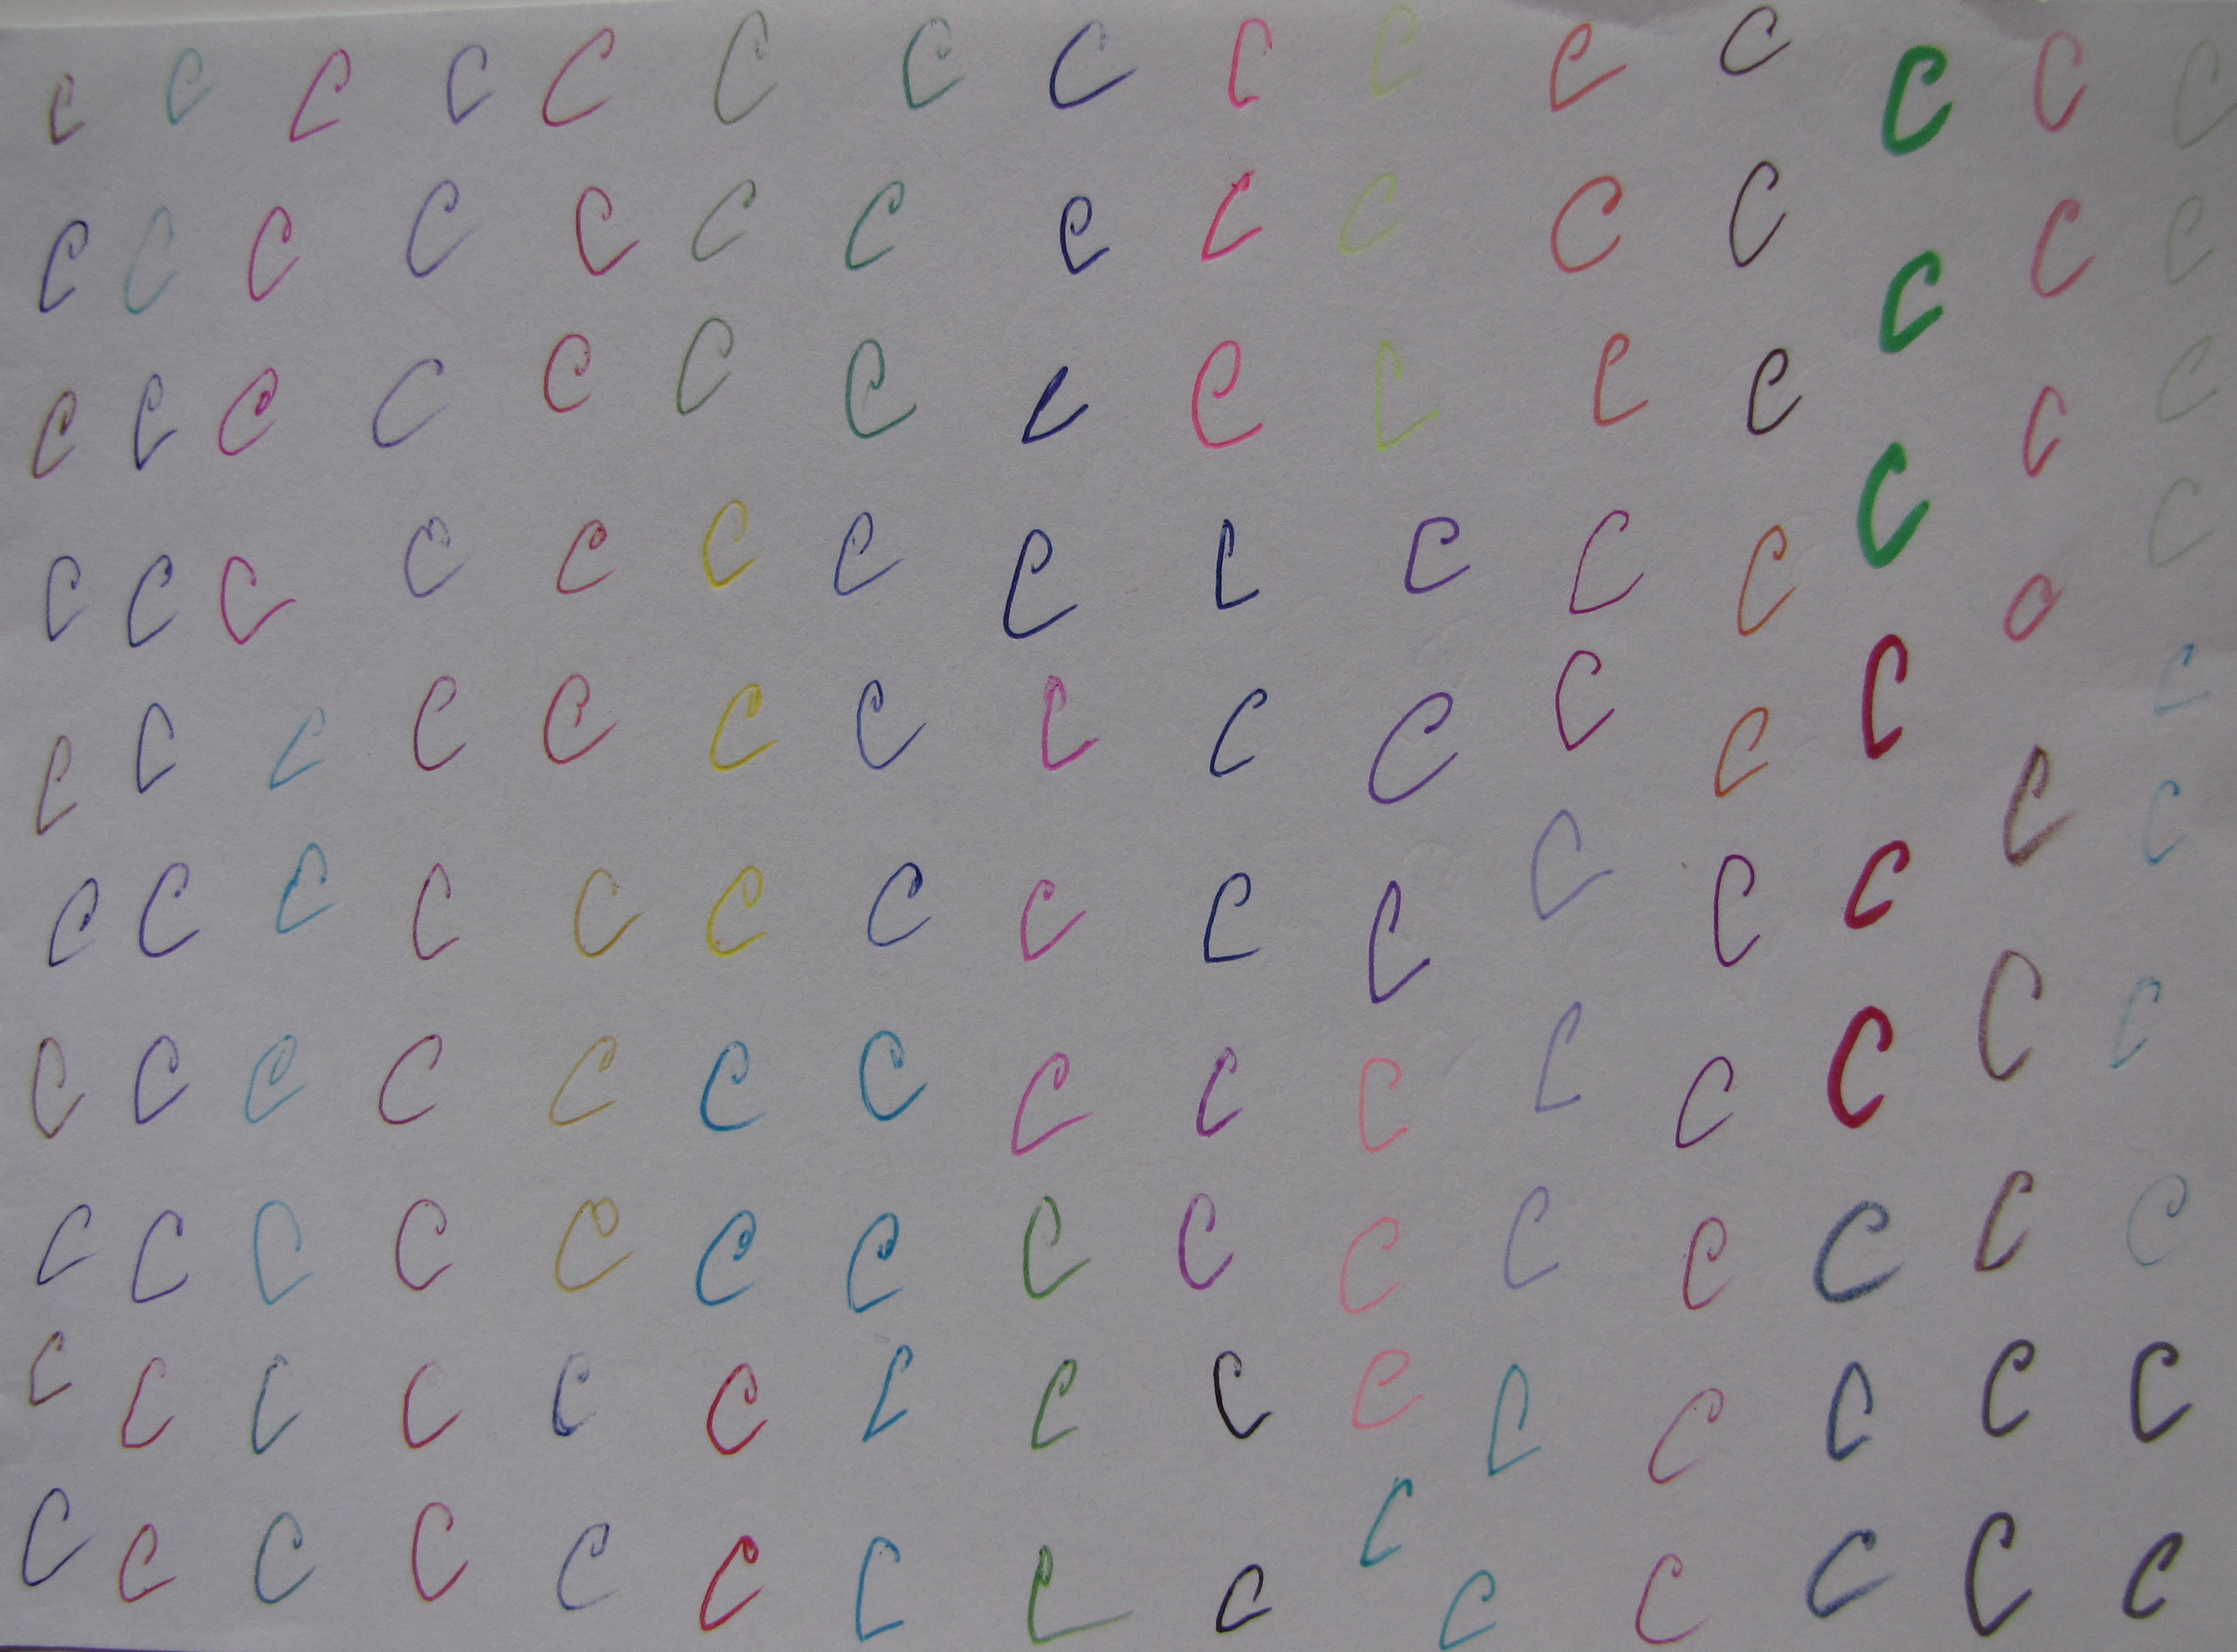 C C C C C C C C C C C C C C C
C C C C C C C C C C C C C C C
C C C C C C C C C C C C C C C
C C C C C C C C C C C C C C C
C C C C C C C C C C C C C C C
C C C C C C C C C C C C C C C
C C C C C C C C C C C C C C C
C C C C C C C C C C C C C C C
C C C C C C C C C C C C C C C
C C C C C C C C C C C C C C C